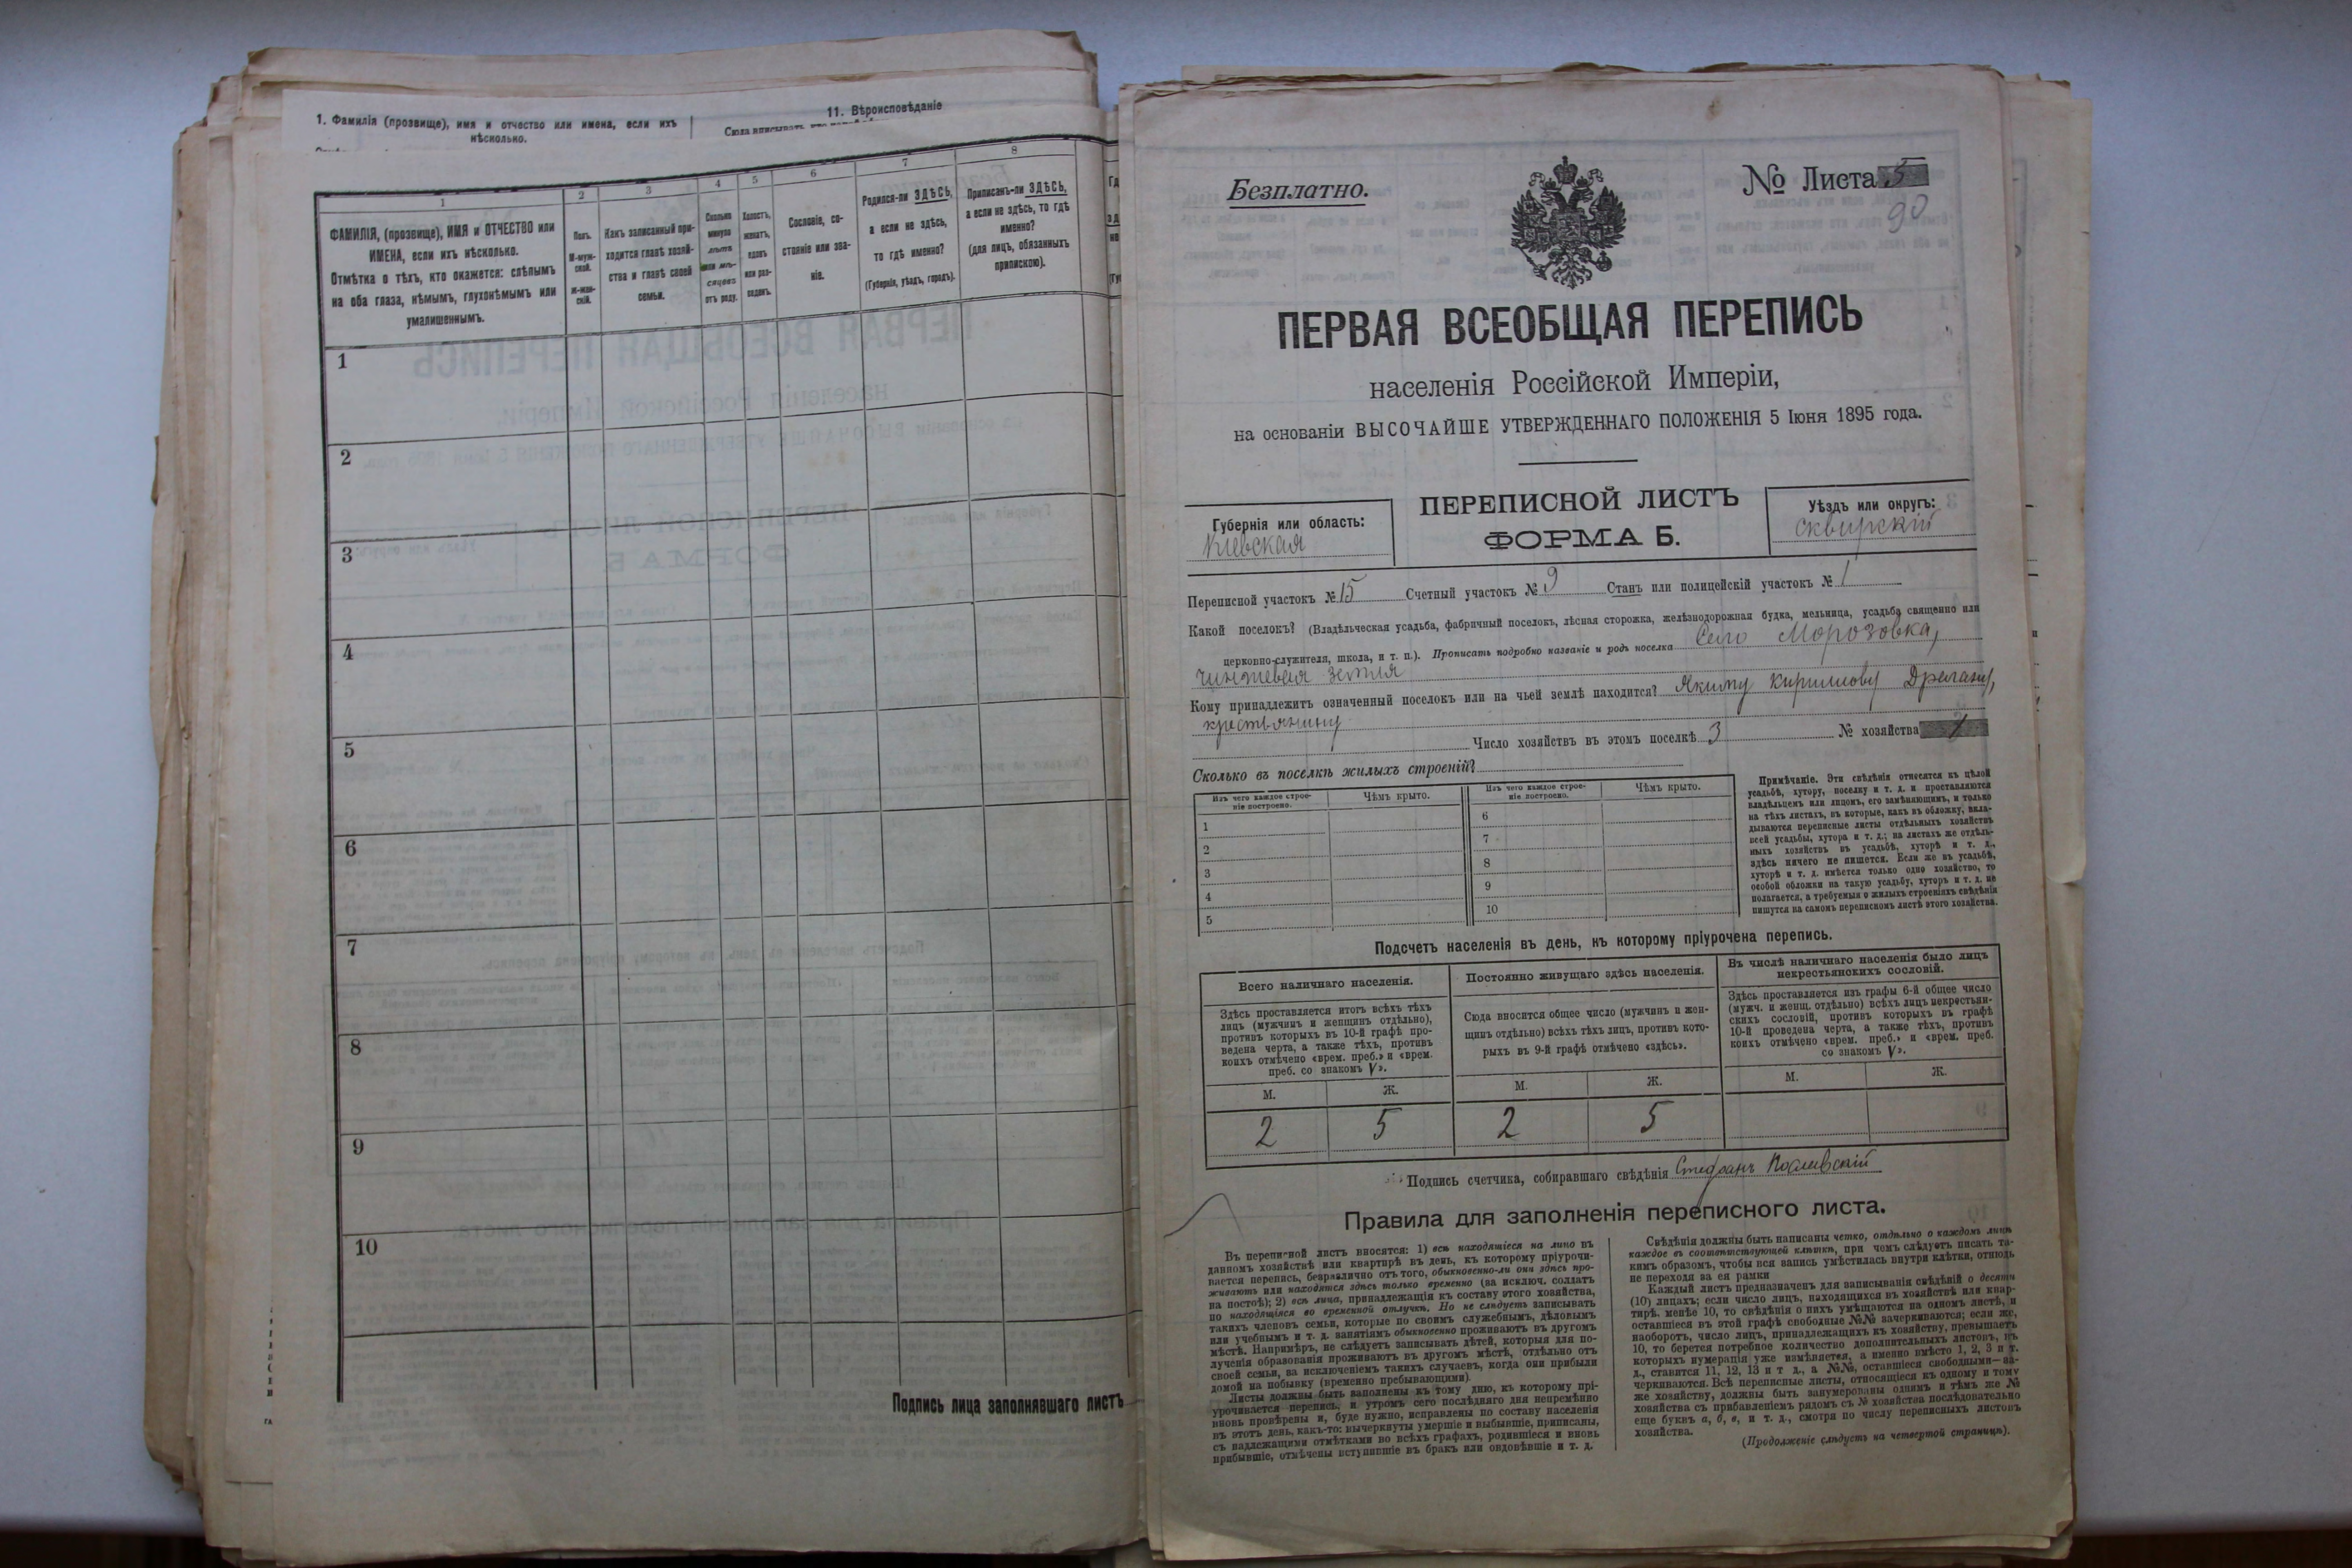 1. Фамилія (прозвище), имя и отчество или имена, если ихъ
нѣсколько.
11. Вѣроисповѣданіе
Сюда вписывать,
1
2
3
4
5
6
7
8
ФАМИЛІЯ, (прозвище), ИМЯ и ОТЧЕСТВО или
ИМЕНА, если ихъ нѣсколько.
Отмѣтка о тѣхъ, кто окажется: слѣпымъ
на оба глаза, нѣмымъ, глухонѣмымъ или
умалишеннымъ.
Полъ.
М-муж-
ской.
Ж-жен-
скій.
Какъ записанный при-
ходится главѣ хозяй-
ства и главѣ своей
семьи.
Сколько
минуло
лѣтъ
или мѣ-
сяцевъ
отъ роду.
Холостъ,
женатъ,
вдовъ
или раз-
веденъ.
Сословіе, со-
стояніе или зва-
ніе.
Родился-ли ЗДѢСЬ,
а если не здѣсь,
то гдѣ именно?
(Губернія, уѣздъ, городъ).
Приписанъ-ли ЗДѢСЬ,
а если не здѣсь, то гдѣ
именно?
(для лицъ, обязанныхъ
припискою).
1
2
3
4
5
6
7
8
9
10
Подпись лица заполнявшаго листъ
Безплатно.
№ Листа 5
90
ПЕРВАЯ ВСЕОБЩАЯ ПЕРЕПИСЬ
населенія Россійской Имперіи,
на основаніи ВЫСОЧАЙШЕ УТВЕРЖДЕННАГО ПОЛОЖЕНІЯ 5 Іюня 1895 года.
Губернія или область:
Кіевская
ПЕРЕПИСНОЙ ЛИСТЪ
ФОРМА Б.
Уѣздъ или округъ:
Сквирскій
Переписной участокъ № 15 Счетный участокъ № 9 Станъ или полицейскій участокъ № 1
Какой поселокъ? (Владѣльческая усадьба, фабричный поселокъ, лѣсная сторожка, желѣзнодорожная будка, мельница, усадьба священно или
церковно-служителя, школа, и т. п.). Прописать подробно названіе и родъ поселка Село Морозовка,
чиншевая земля
Кому принадлежитъ означенный поселокъ или на чьей землѣ находится? Якиму Кириллову Драгану,
крестьянину
Число хозяйствъ въ этомъ поселкѣ 3 № хозяйства 1
Сколько въ поселкѣ жилыхъ строеній?
Изъ чего каждое строе-
ніе построено.
Чѣмъ крыто.
Изъ чего каждое строе-
ніе построено.
Чѣмъ крыто.
1
2
3
4
5
6
7
8
9
10
Примѣчаніе. Эти свѣдѣнія относятся къ цѣлой
усадьбѣ, хутору, поселку и т. д. и проставляются
владѣльцемъ или лицомъ, его замѣняющимъ, и только
на тѣхъ листахъ, въ которые, какъ въ обложку, вкла-
дываются переписные листы отдѣльныхъ хозяйствъ
всей усадьбы, хутора и т. д.; на листахъ же отдѣль-
ныхъ хозяйствъ въ усадьбѣ, хуторѣ и т. д.,
здѣсь ничего не пишется. Если же въ усадьбѣ,
хуторѣ и т. д. имѣется только одно хозяйство, то
особой обложки на такую усадьбу, хуторъ и т. д. не
полагается, а требуемыя о жилыхъ строеніяхъ свѣдѣнія
пишутся на самомъ переписномъ листѣ этого хозяйства.
Подсчетъ населенія въ день, къ которому пріурочена перепись.
Всего наличнаго населенія.
Здѣсь проставляется итогъ всѣхъ тѣхъ
лицъ (мужчинъ и женщинъ отдѣльно),
противъ которыхъ въ 10-й графѣ про-
ведена черта, а также тѣхъ, противъ
коихъ отмѣчено «врем. преб.» и «врем.
преб. со знакомъ V».
Постоянно живущаго здѣсь населенія.
Сюда вносится общее число (мужчинъ и жен-
щинъ отдѣльно) всѣхъ тѣхъ лицъ, противъ кото-
рыхъ въ 9-й графѣ отмѣчено «здѣсь».
Въ числѣ наличнаго населенія было лицъ
некрестьянскихъ сословій.
Здѣсь проставляется изъ графы 6-й общее число
(мужч. и женщ. отдѣльно) всѣхъ лицъ некрестьян-
скихъ сословій, противъ которыхъ въ графѣ
10-й проведена черта, а также тѣхъ, противъ
коихъ отмѣчено «врем. преб.» и «врем. преб.
со знакомъ V».
М. Ж. М. Ж. М. Ж.
2 5 2 5
Подпись счетчика, собиравшаго свѣдѣнія Стефанъ
Правила для заполненія переписного листа.
Въ переписной листъ вносятся: 1) всѣ находящіеся на лицо въ
данномъ хозяйствѣ или квартирѣ въ день, къ которому пріурочи-
вается перепись, безразлично отъ того, обыкновенно-ли они здѣсь про-
живаютъ или находятся здѣсь только временно (за исключ. солдатъ
на постоѣ); 2) всѣ лица, принадлежащія къ составу этого хозяйства,
но находящіяся во временной отлучкѣ. Но не слѣдуетъ записывать
такихъ членовъ семьи, которые по своимъ служебнымъ, дѣловымъ
или учебнымъ и т. д. занятіямъ обыкновенно проживаютъ въ другомъ
мѣстѣ. Напримѣръ, не слѣдуетъ записывать дѣтей, которыя для по-
лученія образованія проживаютъ въ другомъ мѣстѣ, отдѣльно отъ
своей семьи, за исключеніемъ такихъ случаевъ, когда они прибыли
домой на побывку (временно пребывающими).
Листы должны быть заполнены къ тому дню, къ которому прі-
урочивается перепись, и утромъ сего послѣдняго дня непремѣнно
вновь провѣрены и, буде нужно, исправлены по составу населенія
въ этотъ день, какъ-то: вычеркнуты умершіе и выбывшіе, приписаны,
съ надлежащими отмѣтками во всѣхъ графахъ, родившіеся и вновь
прибывшіе, отмѣчены вступившіе въ бракъ или овдовѣвшіе и т. д.
Свѣдѣнія должны быть написаны четко, отдѣльно о каждомъ лицѣ
каждое въ соотвѣтствующей клѣткѣ, при чемъ слѣдуетъ писать та-
кимъ образомъ, чтобы вся запись умѣстилась внутри клѣтки, отнюдь
не переходя за ея рамки
Каждый листъ предназначенъ для записыванія свѣдѣній о десяти
(10) лицахъ; если число лицъ, находящихся въ хозяйствѣ или квар-
тирѣ, менѣе 10, то свѣдѣнія о нихъ умѣщаются на одномъ листѣ, и
оставшіеся въ этой графѣ свободные №№ зачеркиваются; если же,
наоборотъ, число лицъ, принадлежащихъ къ хозяйству, превышаетъ
10, то берется потребное количество дополнительныхъ листовъ, въ
которыхъ нумерація уже измѣняется, а именно вмѣсто 1, 2, 3 и т.
д., ставится 11, 12, 13 и т д., а №№, оставшіеся свободными—за-
черкиваются. Всѣ переписные листы, относящіеся къ одному и тому
же хозяйству, должны быть занумерованы однимъ и тѣмъ же №
хозяйства съ прибавленіемъ рядомъ съ № хозяйства послѣдовательно
еще буквъ а, б, в, и т. д., смотря по числу переписныхъ листовъ
хозяйства.
(Продолженіе слѣдуетъ на четвертой страницѣ).